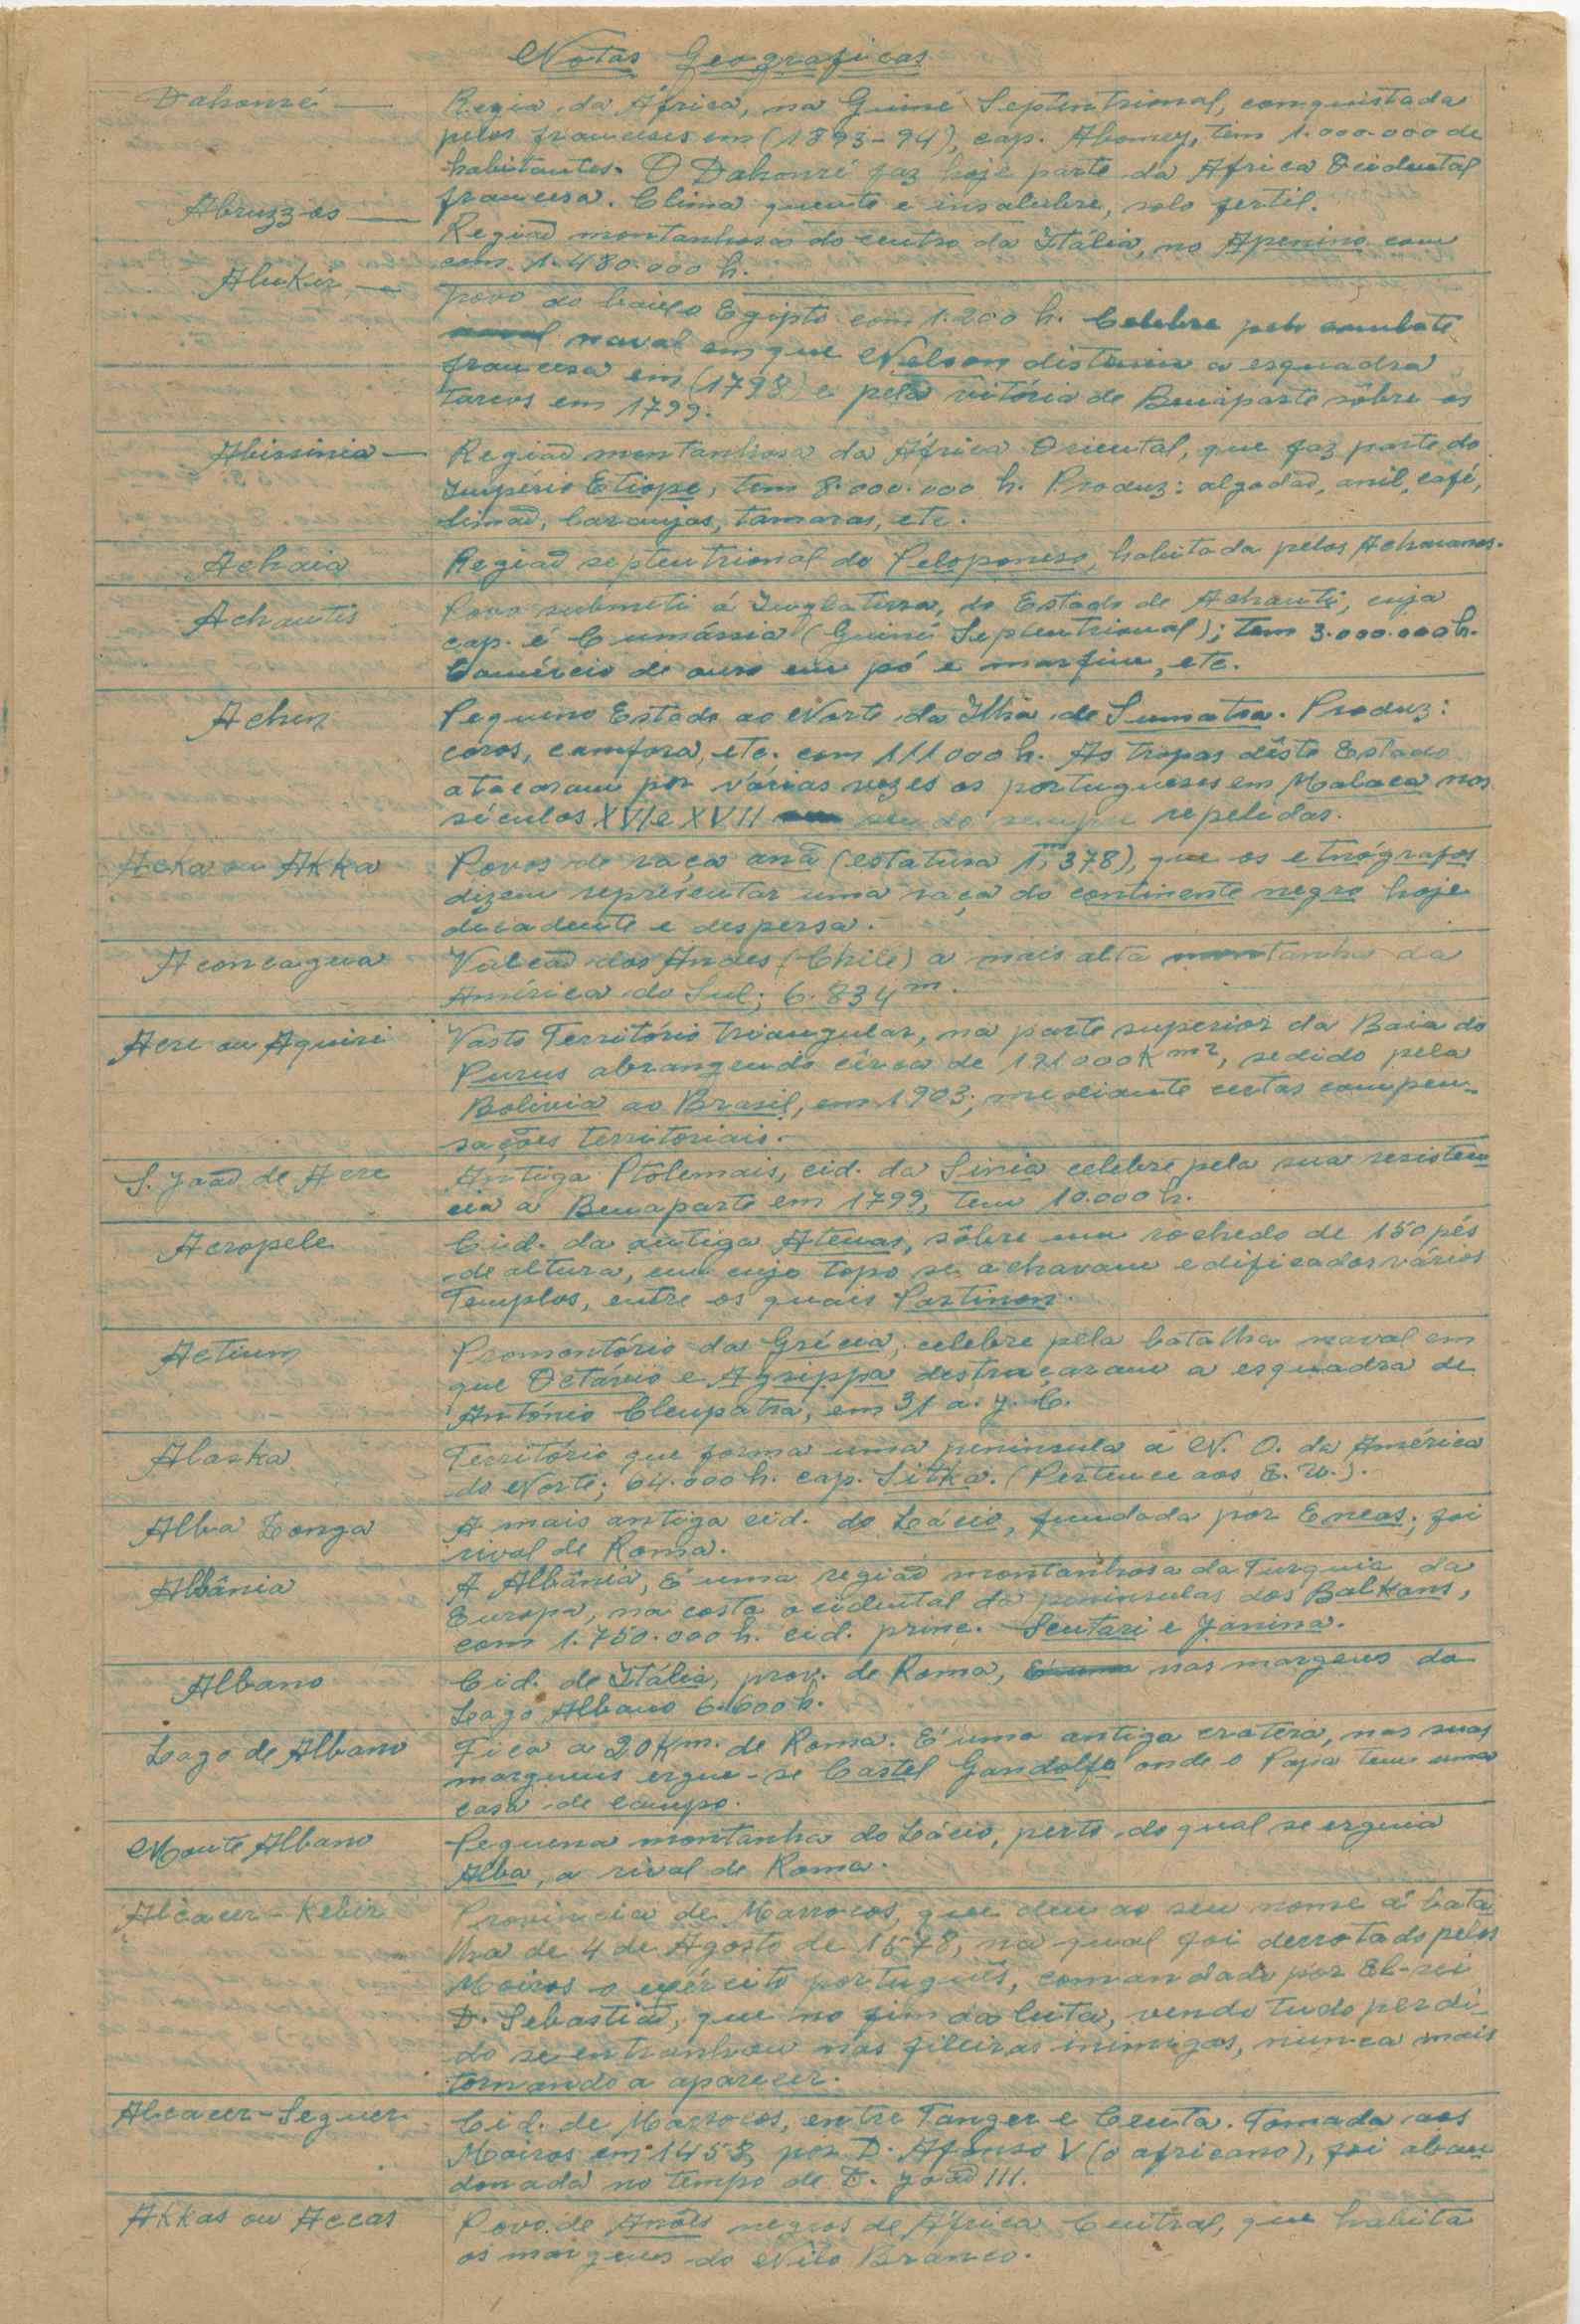 Notas Geograficas
Dahomé — Regia da África, na Guiné Septentrional, conquistada
pelos franceses em (1893-94), cap. Abomey, tem 1.000.000 de
habitantes. O Dahomé faz hoje parte da Africa Ocidental
francesa. Clima quente e insalubre, solo fertil.
Abruzzos — Região montanhosa do centro da Itália, no Apenino com
com 1.480.000 h.
Abukir — povo do baixo Egipto com 1.200 h. Celebre pelo combate
naval naval em que Nelson distruiu a esquadra
francesa em (1798) e pela vitória de Bunaparte sôbre os
Turcos em 1799.
Abissinia — Região montanhosa da África Oriental, que faz parte do
Império Etiope, tem 8.000.000 h. Produz: algodão, anil, café,
limão, laranjas, tamaras, etc.
Achaia Região septentrional do Peloponeso, habitada pelos Achaianos.
Achantis Povo submeti á Inglaterra, do Estado de Achanti, cuja
cap. é Cumássia (Guiné Septentrional); tem 3.000.000 h.
Comércio de ouro em pó e marfim, etc.
Achin Pequeno Estado ao Norte da Ilha de Sumatra. Produz:
cocos, camfora, etc. com 111000 h. As tropas dêste Estado
atacaram por várias vezes os portugueses em Malaca nos
séculos XVI e XVII sendo sempre repelidas.
Acka ou Akka Povos de raça anã (estatura 1,378), que os etnógrafos
dizem representar uma raça do continente negro hoje
decadente e despersa.
Aconcagua Vulcão dos Andes (Chile) a mais alta montanha da
América do Sul; 6.834 m.
Acre ou Aquiri Vasto Território triangular, na parte superior da Baia do
Purus abrangendo cêrca de 191000 Km2, sedido pela
Bolivia ao Brasil, em 1903; mediante certas compen-
sações territoriais.
S. João de Acre Antiga Ptolemais, cid. da Siria celebre pela sua resisten
cia a Bunaparte em 1799, tem 10.000 h.
Acropele Cid. da antiga Atenas, sôbre um rochedo de 150 pés
de altura, em cujo topo se achavam edificados vários
Templos, entre os quais Partinon.
Actium Promontório da Grécia, celebre pela batalha naval em
que Octávio e Agrippa destraçaram a esquadra de
António Cleupatra, em 31 a. J. C.
Alaska Território que forma uma peninsula a N. O. da América
do Norte; 64.000 h. cap. Sitka. (Pertence aos E. U.).
Alba Longa A mais antiga cid. do Lácio, fundada por Eneas; foi
rival de Roma.
Albânia A Albânia, É uma região montanhosa da Turquia da
Europa, na costa ocidental da peninsulas dos Balkans,
com 1.750.000 h. cid. princ. Scutari e Janina.
Albano Cid. de Itália, prov. de Roma, É uma nas margens do
Lago Albano 6.600 h.
Lago de Albano Fica a 20 Km. de Roma. É uma antiga cratera, nas suas
margens ergue-se Castel Gandolfo onde o Papa tem uma
casa de campo.
Monte Albano Pequena montanha do Lácio, perto do qual se erguia
Alba, a rival de Roma.
Alcacer-Kebir Provincia de Marrocos, que deu ao seu nome á bata
lha de 4 de Agosto de 1578, na qual foi derrotado pelos
Moiros o exército português, comandado por El-rei
D. Sebastião, que no fim da luta, vendo tudo perdi-
do se entranhou nas fileiras inimigas, nunca mais
tornando a aparecer.
Alcacer-Seguer Cid. de Marrocos, entre Tanger e Ceuta. Tomada aos
Moiros em 1458, por D. Afonso V (o africano), foi aban
donada no tempo de D. João III.
Akkas ou Accas Povo de Anões negros de África Central, que habita
as margens do Nilo Branco.